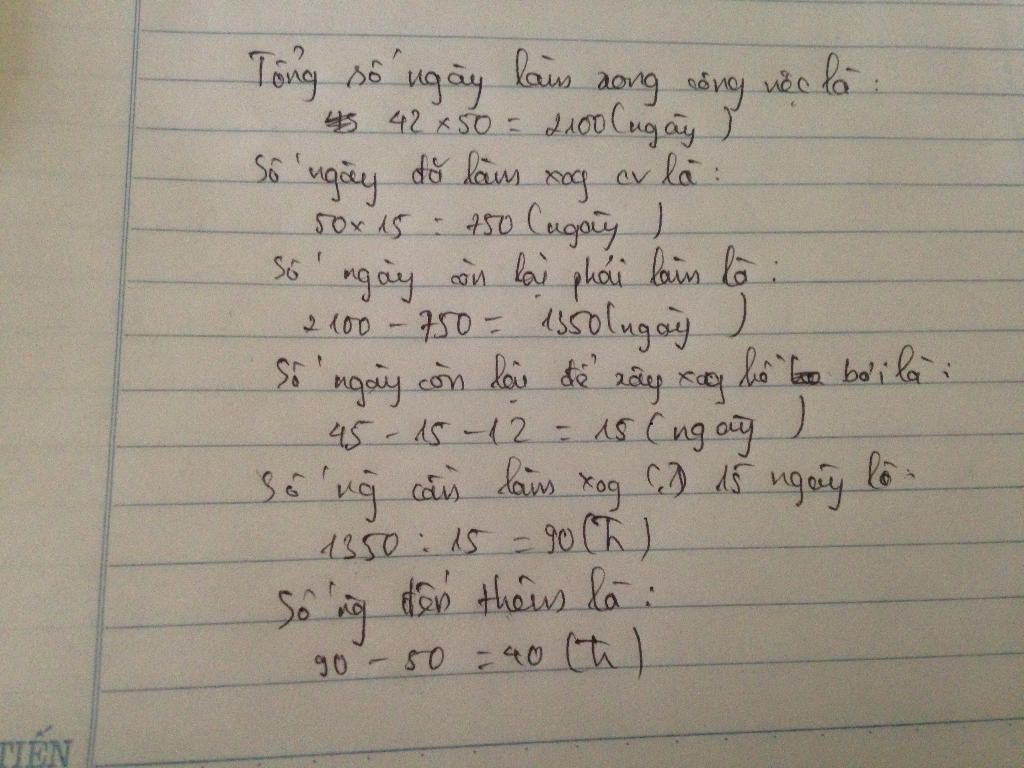 Tổng số ngày làm xong công việc là:
42 × 50 = 2100 (ngày)
Số ngày đã làm xog cv là:
50 × 15 = 750 (ngày)
Số ngày còn lại phải làm là:
2100 - 750 = 1350 (ngày)
Số ngày còn lại để xây xog hồ bơi là:
45 - 15 - 12 = 15 (ngày)
Số ng cần làm xog 15 ngày là:
1350 : 15 = 90
Số ng đến thêm là:
90 - 50 = 40
TIẾN